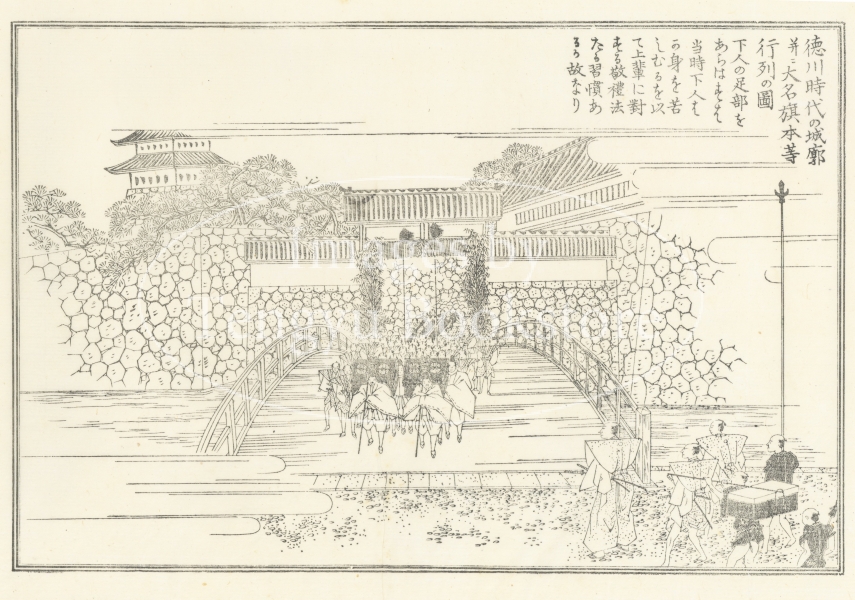 徳川時代の城廓
并ニ大名旗本等
行列の圖
下人の足部を
あらはせるは
当時下人は
身を苦
しむるを以
て上輩に對
する敬禮法
たる習慣あ
るか故なり
Images by
Tengyu Bookstore